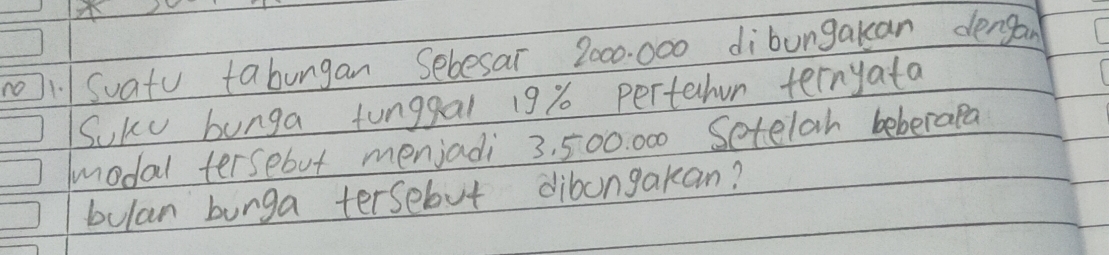 no 1. Suatu tabungan Sebesar 2000.000 dibungakan dengan
Suku bunga tunggal 19% pertahun ternyata
modal tersebut menjadi 3.500.000 Setelah beberapa
bulan bunga tersebut dibungakan?